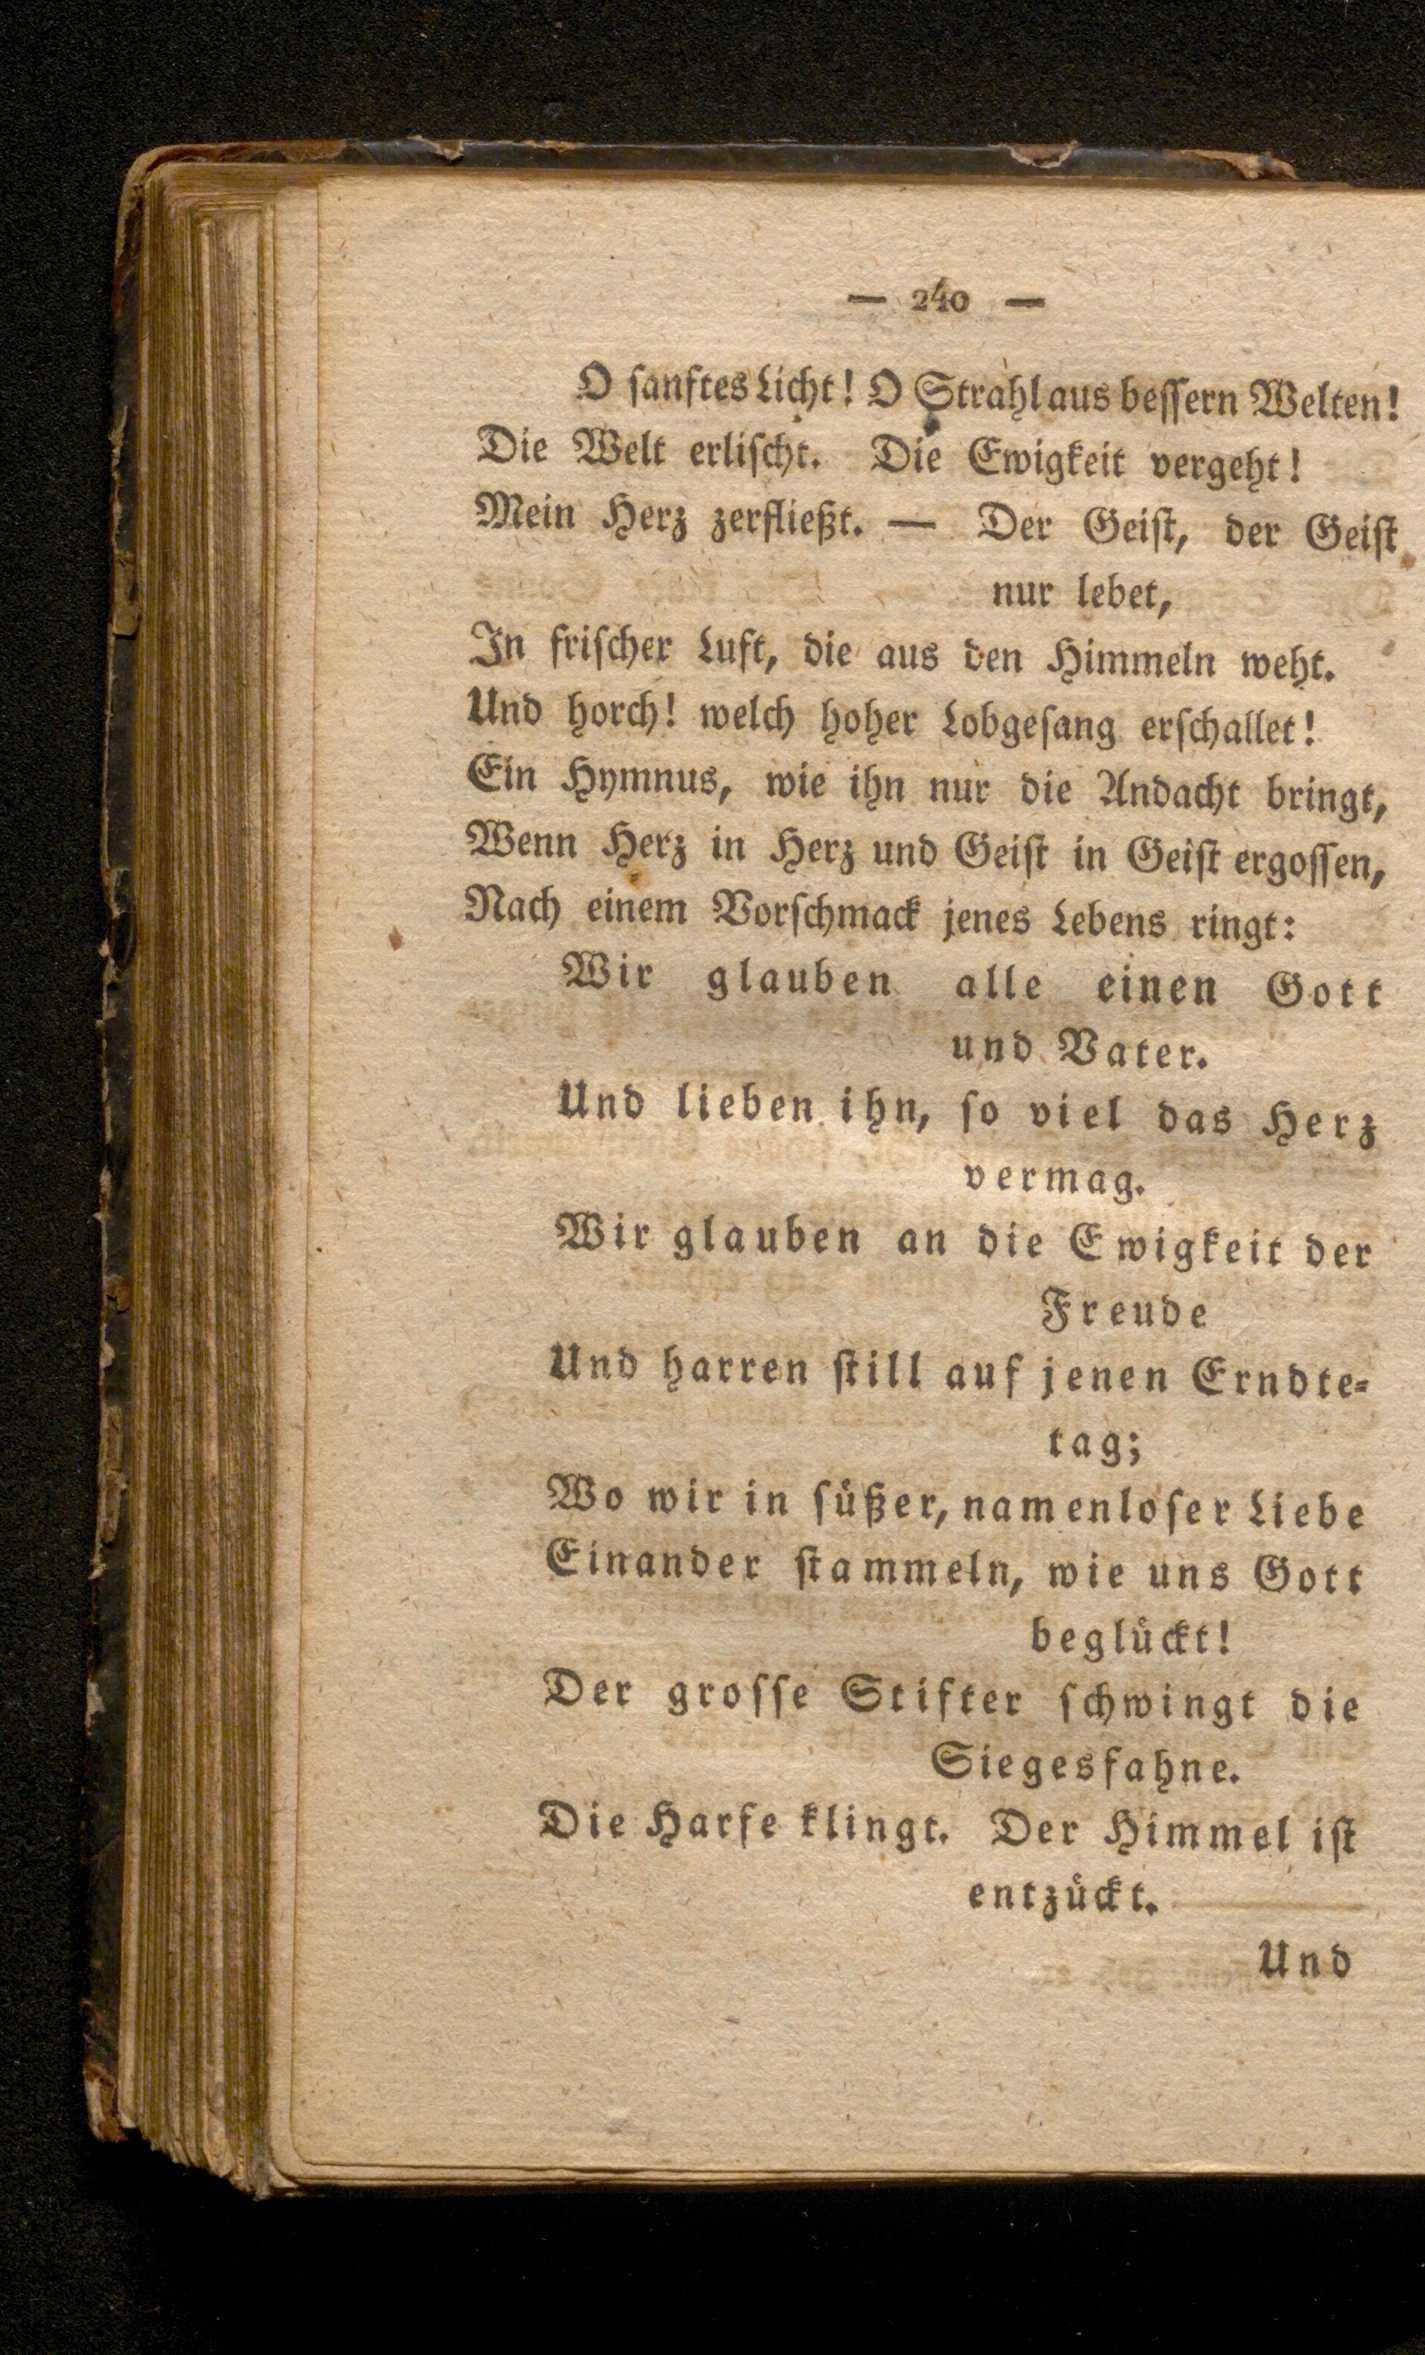 — 240 —
O ſanftes Licht! O Strahl aus beſſern Welten!
Die Welt erliſcht. Die Ewigkeit vergeht!
Mein Herz zerfließt. — Der Geiſt, der Geiſt
nur lebet,
In friſcher Luft, die aus den Himmeln weht.
Und horch! welch hoher Lobgeſang erſchallet!
Ein Hymnus, wie ihn nur die Andacht bringt,
Wenn Herz in Herz und Geiſt in Geiſt ergoſſen,
Nach einem Vorſchmack jenes Lebens ringt:
Wir glauben alle einen Gott
und Vater.
Und lieben ihn, ſo viel das Herz
vermag.
Wir glauben an die Ewigkeit der
Freude
Und harren ſtill auf jenen Erndte-
tag;
Wo wir in ſüßer, namenloſer Liebe
Einander ſtammeln, wie uns Gott
beglückt!
Der groſſe Stifter ſchwingt die
Siegesfahne.
Die Harfe klingt. Der Himmel iſt
entzückt.
Und